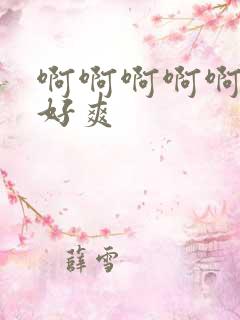 啊啊啊啊啊
好爽
薛雪